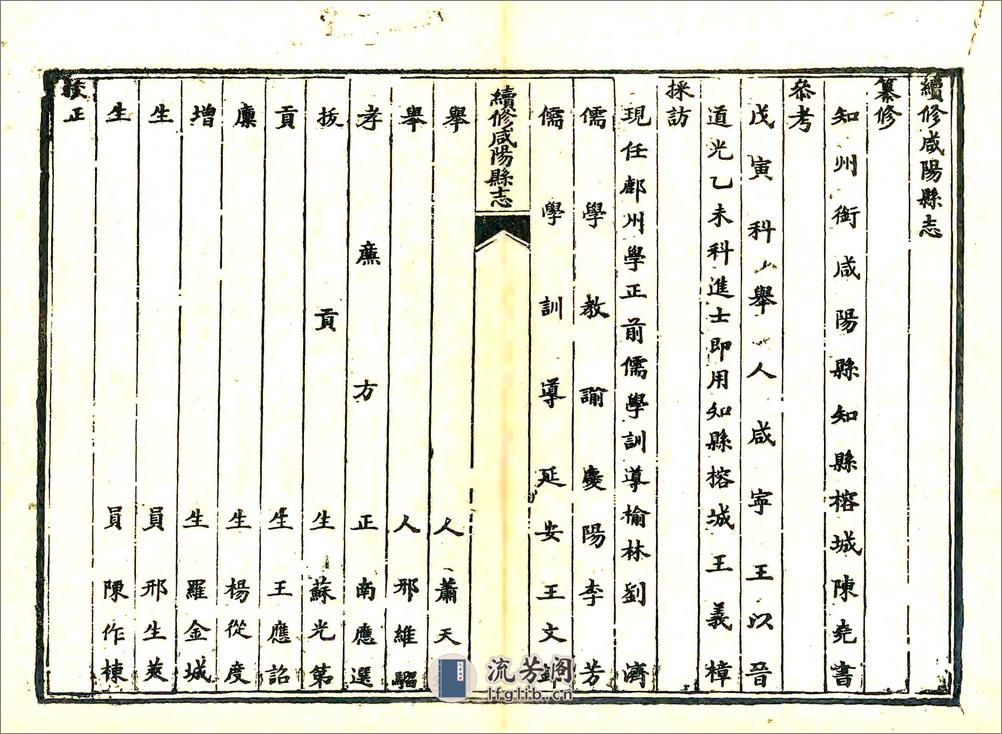 續修咸陽縣志
纂修
知州銜咸陽縣知縣榕城陳堯書
參考
戊寅科舉人咸寧王以晉
道光乙未科進士即用知縣榕城王義樟
採訪
現任鄜州學正前儒學訓導榆林劉濟
儒學教諭慶陽李芳
儒學訓導延安王文
續修咸陽縣志
舉人蕭天
舉人邢維騮
孝廉方正南應選
拔貢生蘇光第
貢生王應詔
廩生楊從度
增生羅金城
生員邢生
生員陳作棟
校正
流芳阁
lfglib.cn